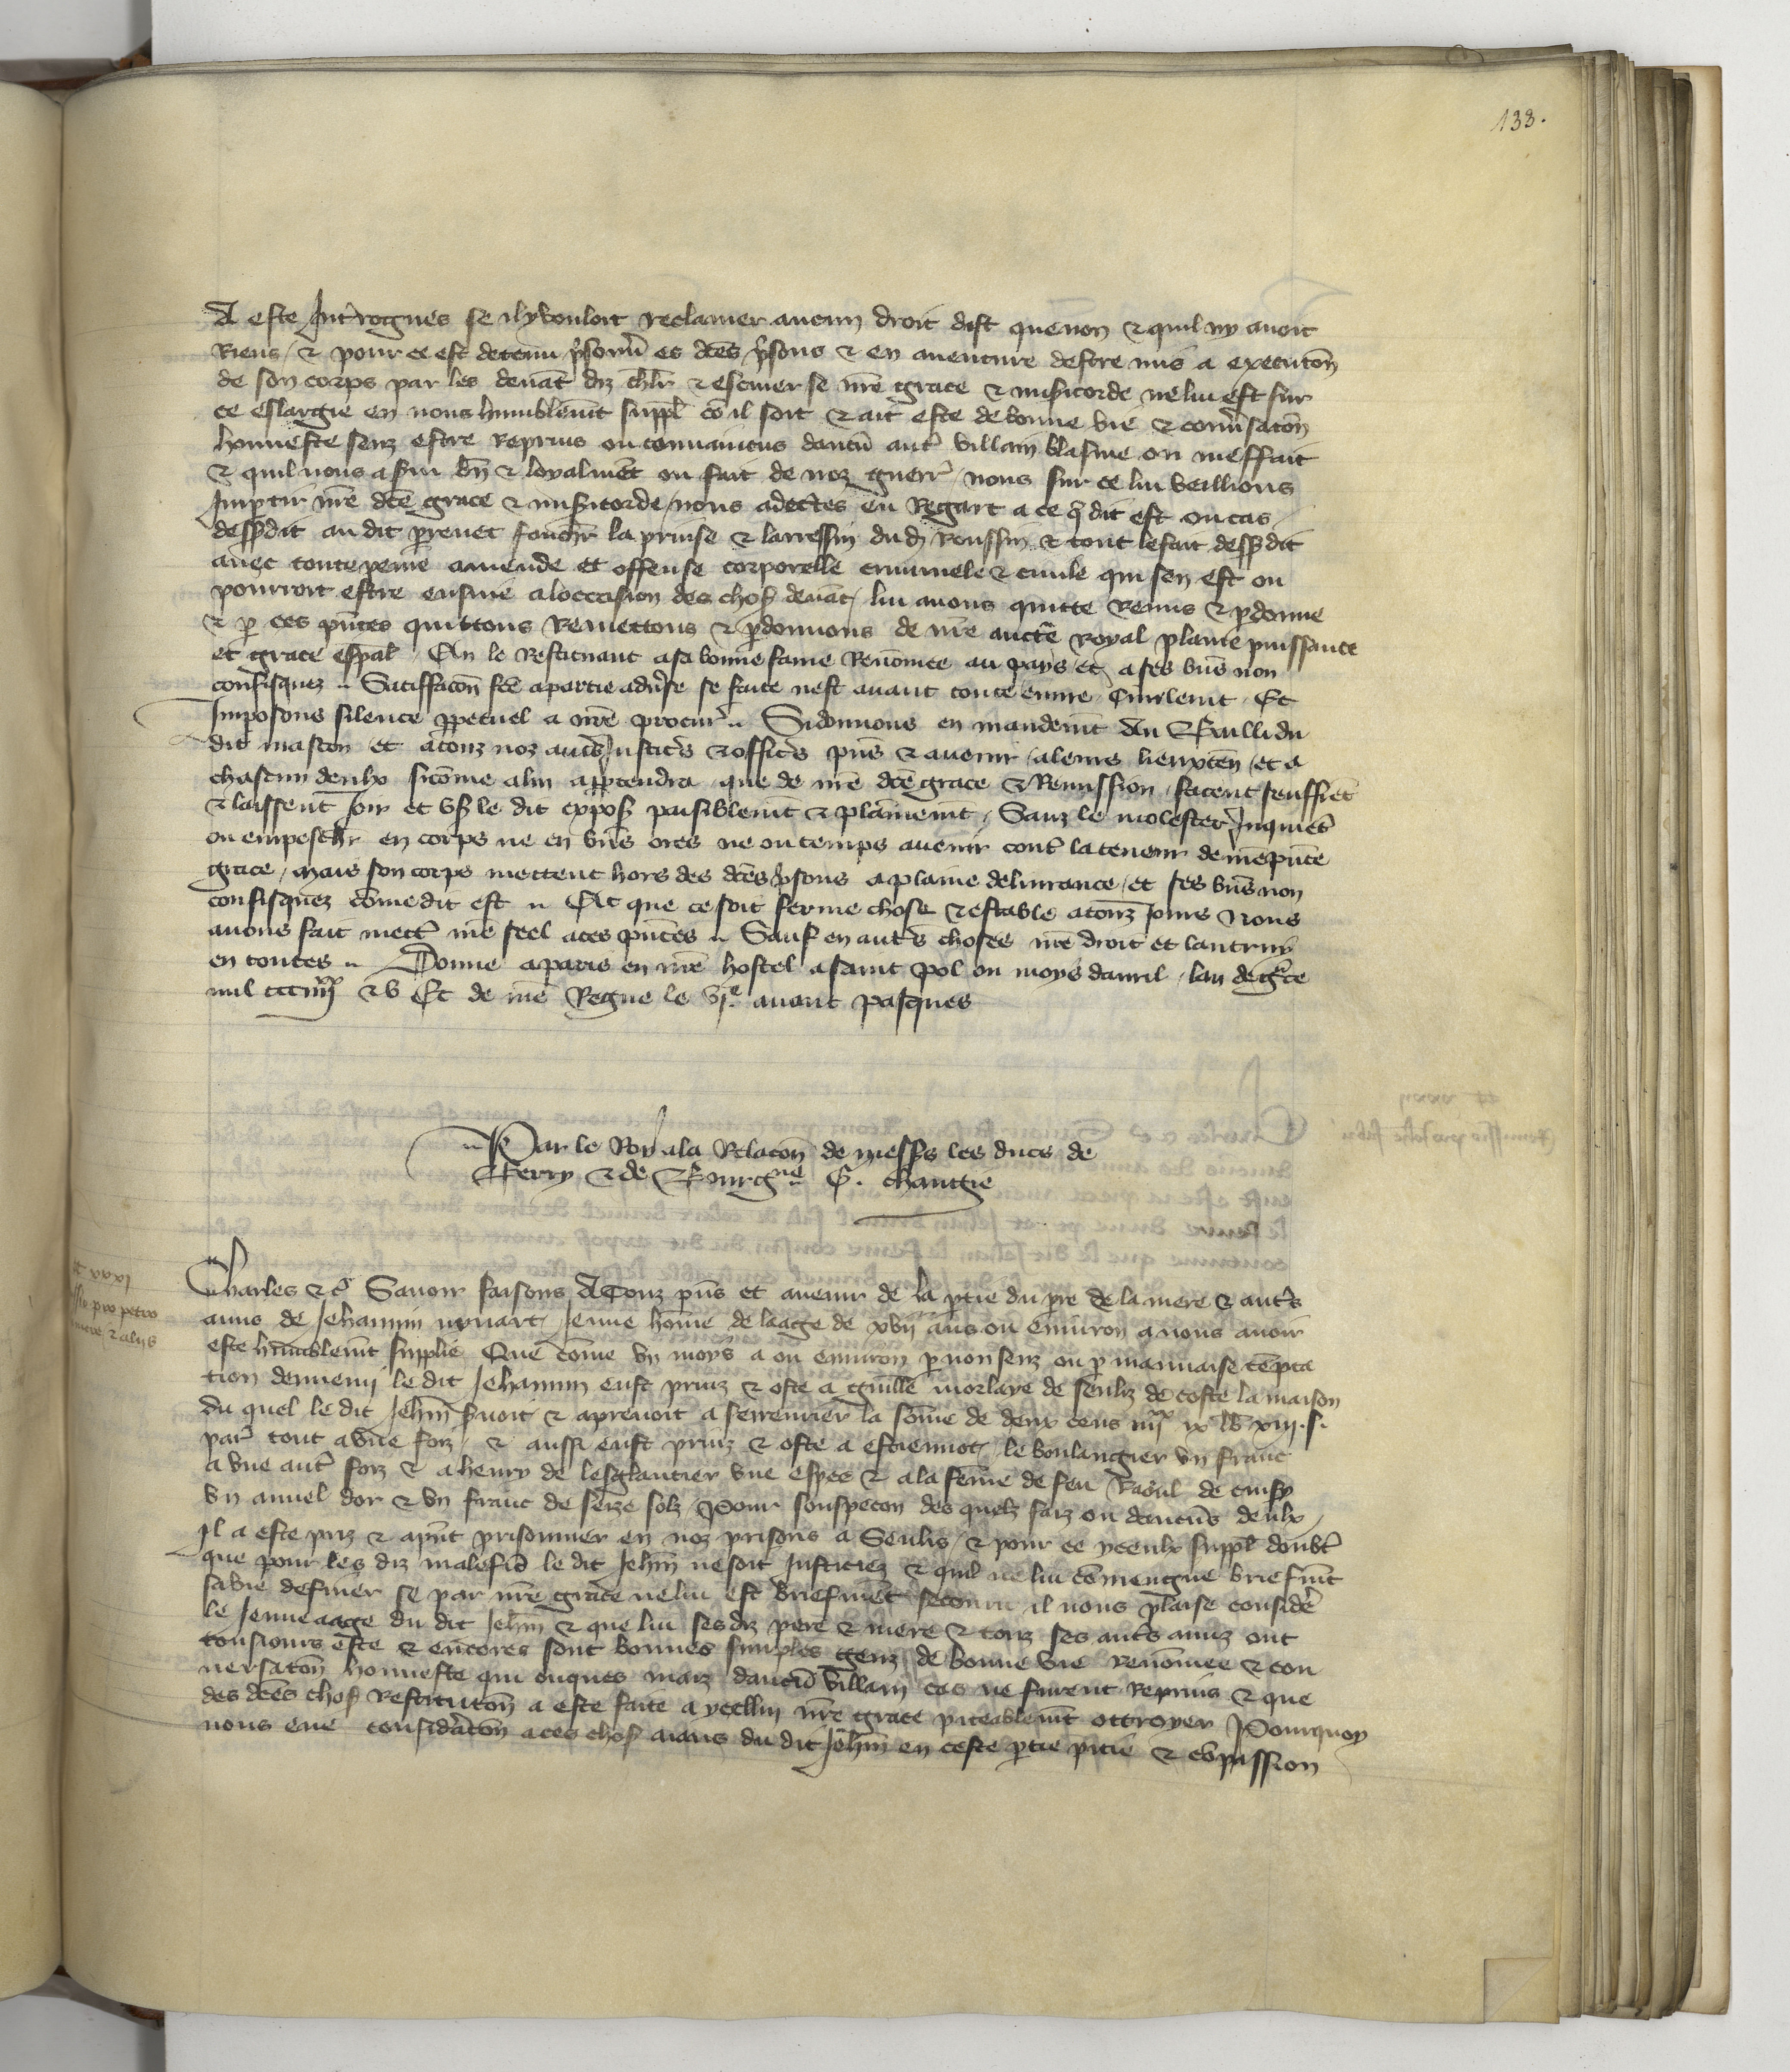 133.
A este Int'rogues se il y vouloit reclamer aucun droit dist que non & quil ny avoit
Riens / & pour ce est detenu p'sonn' es dces p'sons & en aventure destre mis a executon
de son corps par les devat diz chlr & escuier se nre grace & misicorde ne lui est sur
ce eslargie en nous humblemt suppl co il soit & ait este de bonne vie & conv'saton
honneste senz estre Reprins ou convaincus daucu aut' villain blasme ou meffait
& quil nous a s'vi bn & loyalmet ou fait de noz guerr' / nous sur ce lui veillions
Impartir nre dce grace & misicorde / nous adectes eu Regart a ce q dit est ou cas
dessusdit au dit la prinse & larressin dud Roussin & tout le fait dessusdit
avec toute peine amende et offense corporelle criminele & civile qui sen est ou
pourroit estre ensuie a loccasion des chos devat / lui avons quitte Remis & pdonne
& p ces pntes quittons Remettons & pdonnons de nre aucte Royal plaine puissance
et grace espal / En le Restituant a sa bonne fame Renomee au pays et a ses bns non
confisquez .. Satiffacon fce a partie adv'se se faite nest avant toute euvre Civilemt . Et
Imposons silence ppetuel a nre procur' .. Si donnons en mandemt Au Bailli du
dit mascon et a touz noz aut's Justic's & offic's pns & avenir / a leurs lieuxten / et a
chascun deulx sicomme a lui appartendra que de nre dce grace & Remission / facent seuffret
& laissent Joir et us' le dit expos' paisiblemt & plainemt / Sanz le molester Inquiet'
ou empescher en corps ne en bns ores ne ou temps avenir cont' la teneur de nre pnte
grace / mais son corps mettent hors des dces p'sons a plaine delivrance / et ses bns non
confisquez come dit est .. Et que ce soit ferme chose & estable a touz jours Nous
avons fait mett' nre seel a ces pntes .. Sauf en aut's choses nre droit et lautruy
en toutes .. Donne a paris en nre hostel a saint pol ou moys davril / lan de gce
mil ccc iiii xx & v Et de nre Regne le vi e avant pasques
Par le Roy a la Relacon de messrs les ducs de
Berry & de Bourgne G. chaugie
xxxi
pro petro
& aliis
Charles &c Savoir faisons A Touz pns et avenir de la ptie du pere de la mere & aut's
amis de Jehannin Jeune home de laage de xvii ans ou environ a nous avoir
este humblemt supplie Que come un moys a ou environ p non senz ou p mauvaise tepta
tion dennemi le dit Jehannin eust prinz & oste a guille morlaye de senliz de coste la maison
du quel le dit Jehin s'voit & aprenoit a serreurier la some de deux cens iiii xx ix lb xiii. s.
par' tout a une foiz / & aussi eust prinz & oste a estiennot / le boulangier un franc
a une aut' foiz & a henry de lesglantier une espee & a la feme de feu Raoul de
un annel dor & un franc de seize solz / Pour souspecon des quelz faiz ou daucuns deulx
Il a este priz & apnt prisonnier en noz prisons a Senlis / & pour ce yceulx suppl doubt'
que pour les diz malefic' le dit Jehin ne soit Justiciez & quil ne lui coviengne briefmt
sa vie definer se par nre grace ne lui est briefmet secouru / il nous plaise consider'
le Jeune aage du dit Jehin & que lui ses diz pere & mere & touz ses aut's amiz ont
tousiours este & encores sont bonnes simples genz de bonne vie renomee & con
versaton honneste qui onques maiz daucu villain cas ne furent Reprins & que
des dces chos' Restitucon a este faite a ycellui nre grace piteablemt ottroyer Pourquoy
nous eue consid'acon a ces chos' aians du dit Jehin en ceste ptie pitie & copassion